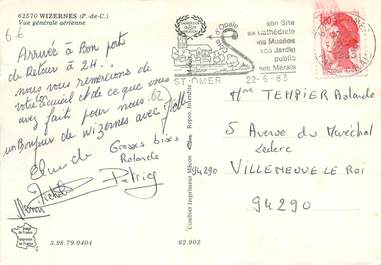 62570 WIZERNES (P.-de-C.)
Vue générale aérienne
6€
Arrivée à Bon ports
de Retour à 2H..
nous vous remercions de
votre accueil et de ce que vous
avez faits pour nous.
un Bonjour de Wizernes avec
Grosses bises
Rolande
Michel
Patrig
Mémé
IMAGE
DE FRANCE
3.98.79.0404
62.902
Combier Imprimeur Mâcon
Repro. Interdite
Côte d'Opale
son Site
sa Cathédrale
ses Musées
son Jardin
public
ses Marais
ST-OMER 22-6-83
1,80
Mme TEMPIER Rolande
5 Avenue du Maréchal
Leclerc
94290 VILLENEUVE LE ROI
94290